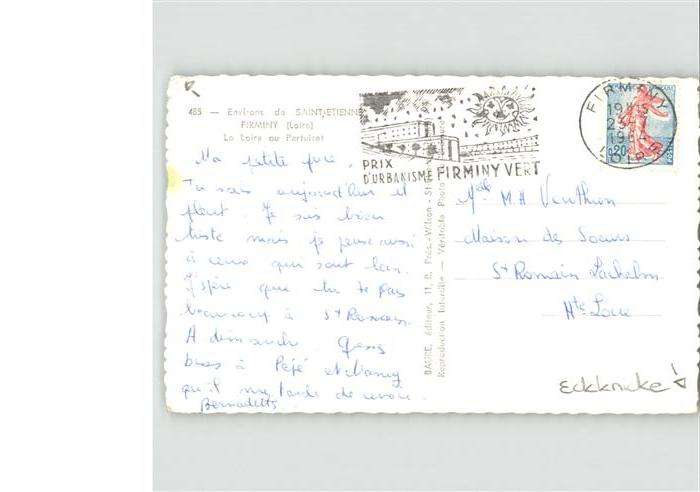 485 — Environs de SAINT-ETIENNE
FIRMINY (Loire)
La Loire au Pertuiset
Ma petite
Tu sais aujourd'hui il
pleut. Je suis bien
triste mais je pense aussi
à ceux qui sont loin.
J'espère que tu te pas
beaucoup à St Romain.
A dimanche. Gros
bises à Pépé et Mamy
qu'il me tarde de revoir.
Bernadette
BAURE, Editeur, 11, R. Prés.-Wilson - St
Reproduction Interdite — Véritable Photo
PRIX
D'URBANISME FIRMINY VERT
FIRMINY
LOIRE
0,20
Melle M H
Maison des Soeurs
St Romain Lachalm
Hte Loire
Eckknicke